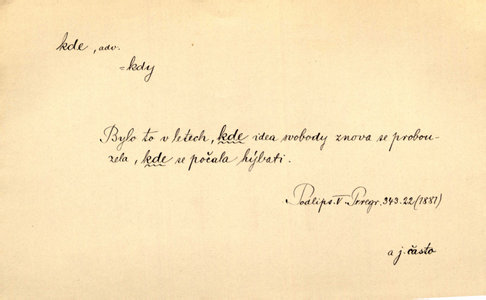 kde, adv.
=kdy
Bylo to v letech, kde idea svobody znova se probou-
zela, kde se počala hýbati.
Podlips. V Peregr. 343.22 (1881)
a j. často